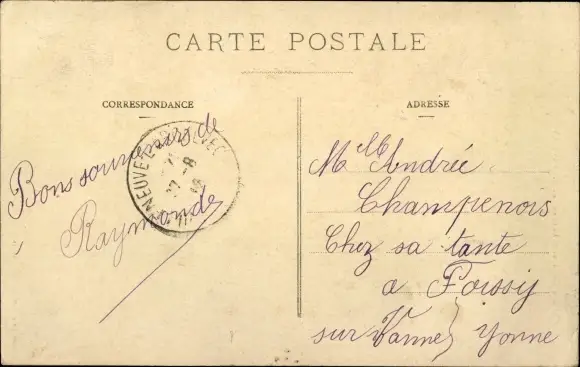 CARTE POSTALE
CORRESPONDANCE
Bons souvenirs de
Raymonde
ADRESSE
Mlle Andrée
Champenois
Chez sa tante
a Foissy
sur Vannes Yonne